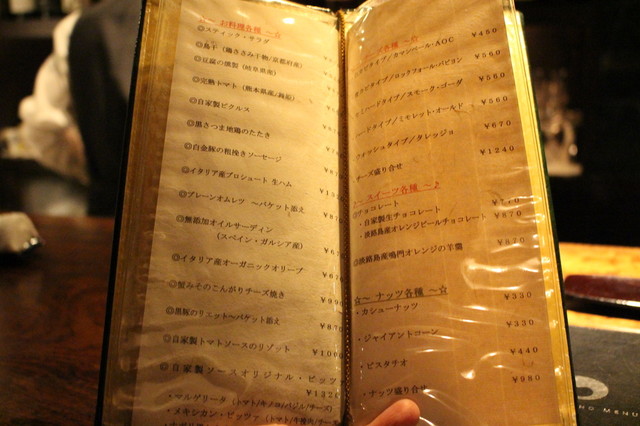 お料理各種 ～☆
◎スティック・サラダ
◎鳥干（鶏ささみ干物/京都府産）
◎豆腐の燻製（岐阜県産）
◎完熟トマト（熊本県産/
◎自家製ピクルス
◎黒さつま地鶏のたたき
◎白金豚の粗挽きソーセージ
◎イタリア産プロシュート 生ハム
◎プレーンオムレツ ～バケット添え
◎無添加オイルサーディン
（スペイン・ガルシア産）
◎イタリア産オーガニックオリーブ
◎蟹みそのこんがりチーズ焼き ¥990
◎黒豚のリエット～バケット添え ¥870
◎自家製トマトソースのリゾット
◎自家製ソースオリジナル・ピッツ
¥1320
・マルゲリータ（トマト/キノコ/バジル/チーズ）
・メキシカン・ピッツァ（トマト/牛挽肉/チー
ズ各種 ～☆
カビタイプ/カマンベール・AOC ¥450
カビタイプ/ロックフォール・パピヨン ¥560
ハードタイプ/スモーク・ゴーダ ¥560
ドタイプ/ミモレット・オールド ¥560
ウォッシュタイプ/タレッジョ ¥670
チーズ盛り合せ ¥1240
～ スイーツ各種 ～♪
◎チョコレート
・自家製生チョコレート ¥770
・淡路島産オレンジピールチョコレート ¥870
◎淡路島産鳴門オレンジの羊羹 ¥870
☆～ ナッツ各種 ～☆
・カシューナッツ ¥330
・ジャイアントコーン ¥330
・ピスタチオ ¥440
・ナッツ盛り合せ ¥980
MENU